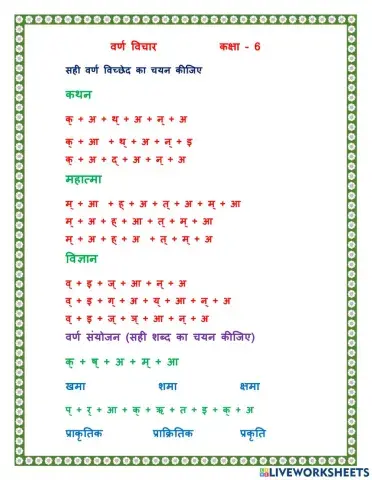 वर्ण विचार कक्षा - 6
सही वर्ण विच्छेद का चयन कीजिए
कथन
क् + अ + थ् + अ + न् + अ
क् + आ + थ् + अ + न् + इ
क् + अ + द् + अ + न् + अ
महात्मा
म् + आ + ह् + अ + त् + अ + म् + आ
म् + अ + ह् + आ + त् + म् + आ
म् + अ + ह् + अ + त् + म् + अ
विज्ञान
व् + इ + ज् + आ + न् + अ
व् + इ + ग् + अ + य् + आ + न् + अ
व् + इ + ज् + ञ् + आ + न् + अ
वर्ण संयोजन (सही शब्द का चयन कीजिए)
क् + ष् + अ + म् + आ
खमा शमा क्षमा
प् + र् + आ + क् + ऋ + त + इ + क् + अ
प्राकृतिक प्राक्रितिक प्रकृति
LIVEWORKSHEETS